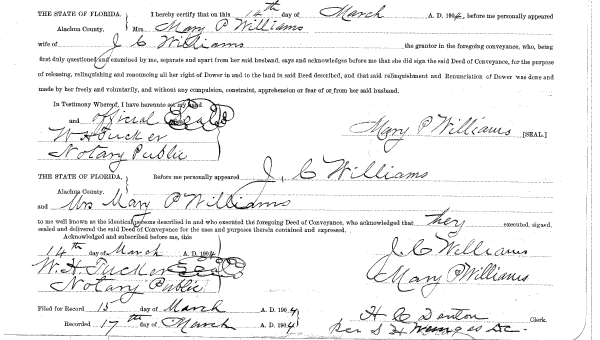 THE STATE OF FLORIDA, I hereby certify that on this 14th day of March A. D. 1904, before me personally appeared
Alachua County. Mrs Mary P Williams
wife of J C Williams the grantor in the foregoing conveyance, who, being
first duly questioned and examined by me, separate and apart from her said husband, says and acknowledges before me that she did sign the said Deed of Conveyance, for the purpose
of releasing, relinquishing and renouncing all her right of Dower in and to the land in said Deed described, and that said relinquishment and Renunciation of Dower was done and
made by her freely and voluntarily, and without any compulsion, constraint, apprehension or fear of or from her said husband.
In Testimony Whereof, I have hereunto set my hand
and official Seal
W H Tucker Mary P Williams [SEAL.]
Notary Public
THE STATE OF FLORIDA, Before me personally appeared J. C Williams
Alachua County.
and Mrs Mary P Williams
to me well known as the identical persons described in and who executed the foregoing Deed of Conveyance, who acknowledged that they executed, signed,
sealed and delivered the said Deed of Conveyance for the uses and purposes therein contained and expressed.
Acknowledged and subscribed before me, this
14th day of March A. D. 1904 J. C Williams
W. H. Tucker Seal Mary P Williams
Notary Public
Filed for Record 15 day of March A. D. 1904 H C Denton Clerk.
Recorded 17th day of March A. D. 1904 per S H D.C.